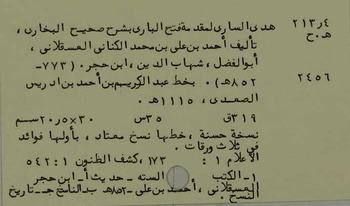 ٢١٣٫٤ هدى السارى لمقدمة فتح البارى بشرح صحيح البخارى ،
هـ٠ح تأليف أحمد بن على بن محمد الكنانى العسقلانى ،
أبو الفضل ، شهاب الدين ، ابن حجر (٧٧٣-
٢٤٥٦ ٨٥٢هـ) ٠ بخط عبد الكريم بن أحمد بن ادريس
الصعدى ، ١١١٥هـ ٠
٣١٩ق ٣٥س ٣٠×٢٠٫٥سم
نسخة حسنة ، خطها نسخ معتاد ، بأولها فوائد
فى ثلاث ورقات ٠
الأعلام ١ : ١٧٣ ، كشف الظنون ١ : ٥٤٢
١- الكتب الستة - حديث أ- ابن حجر
العسقلانى ، أحمد بن على -٨٥٢هـ ب- الناسخ ج- تاريخ
النسخ ٠